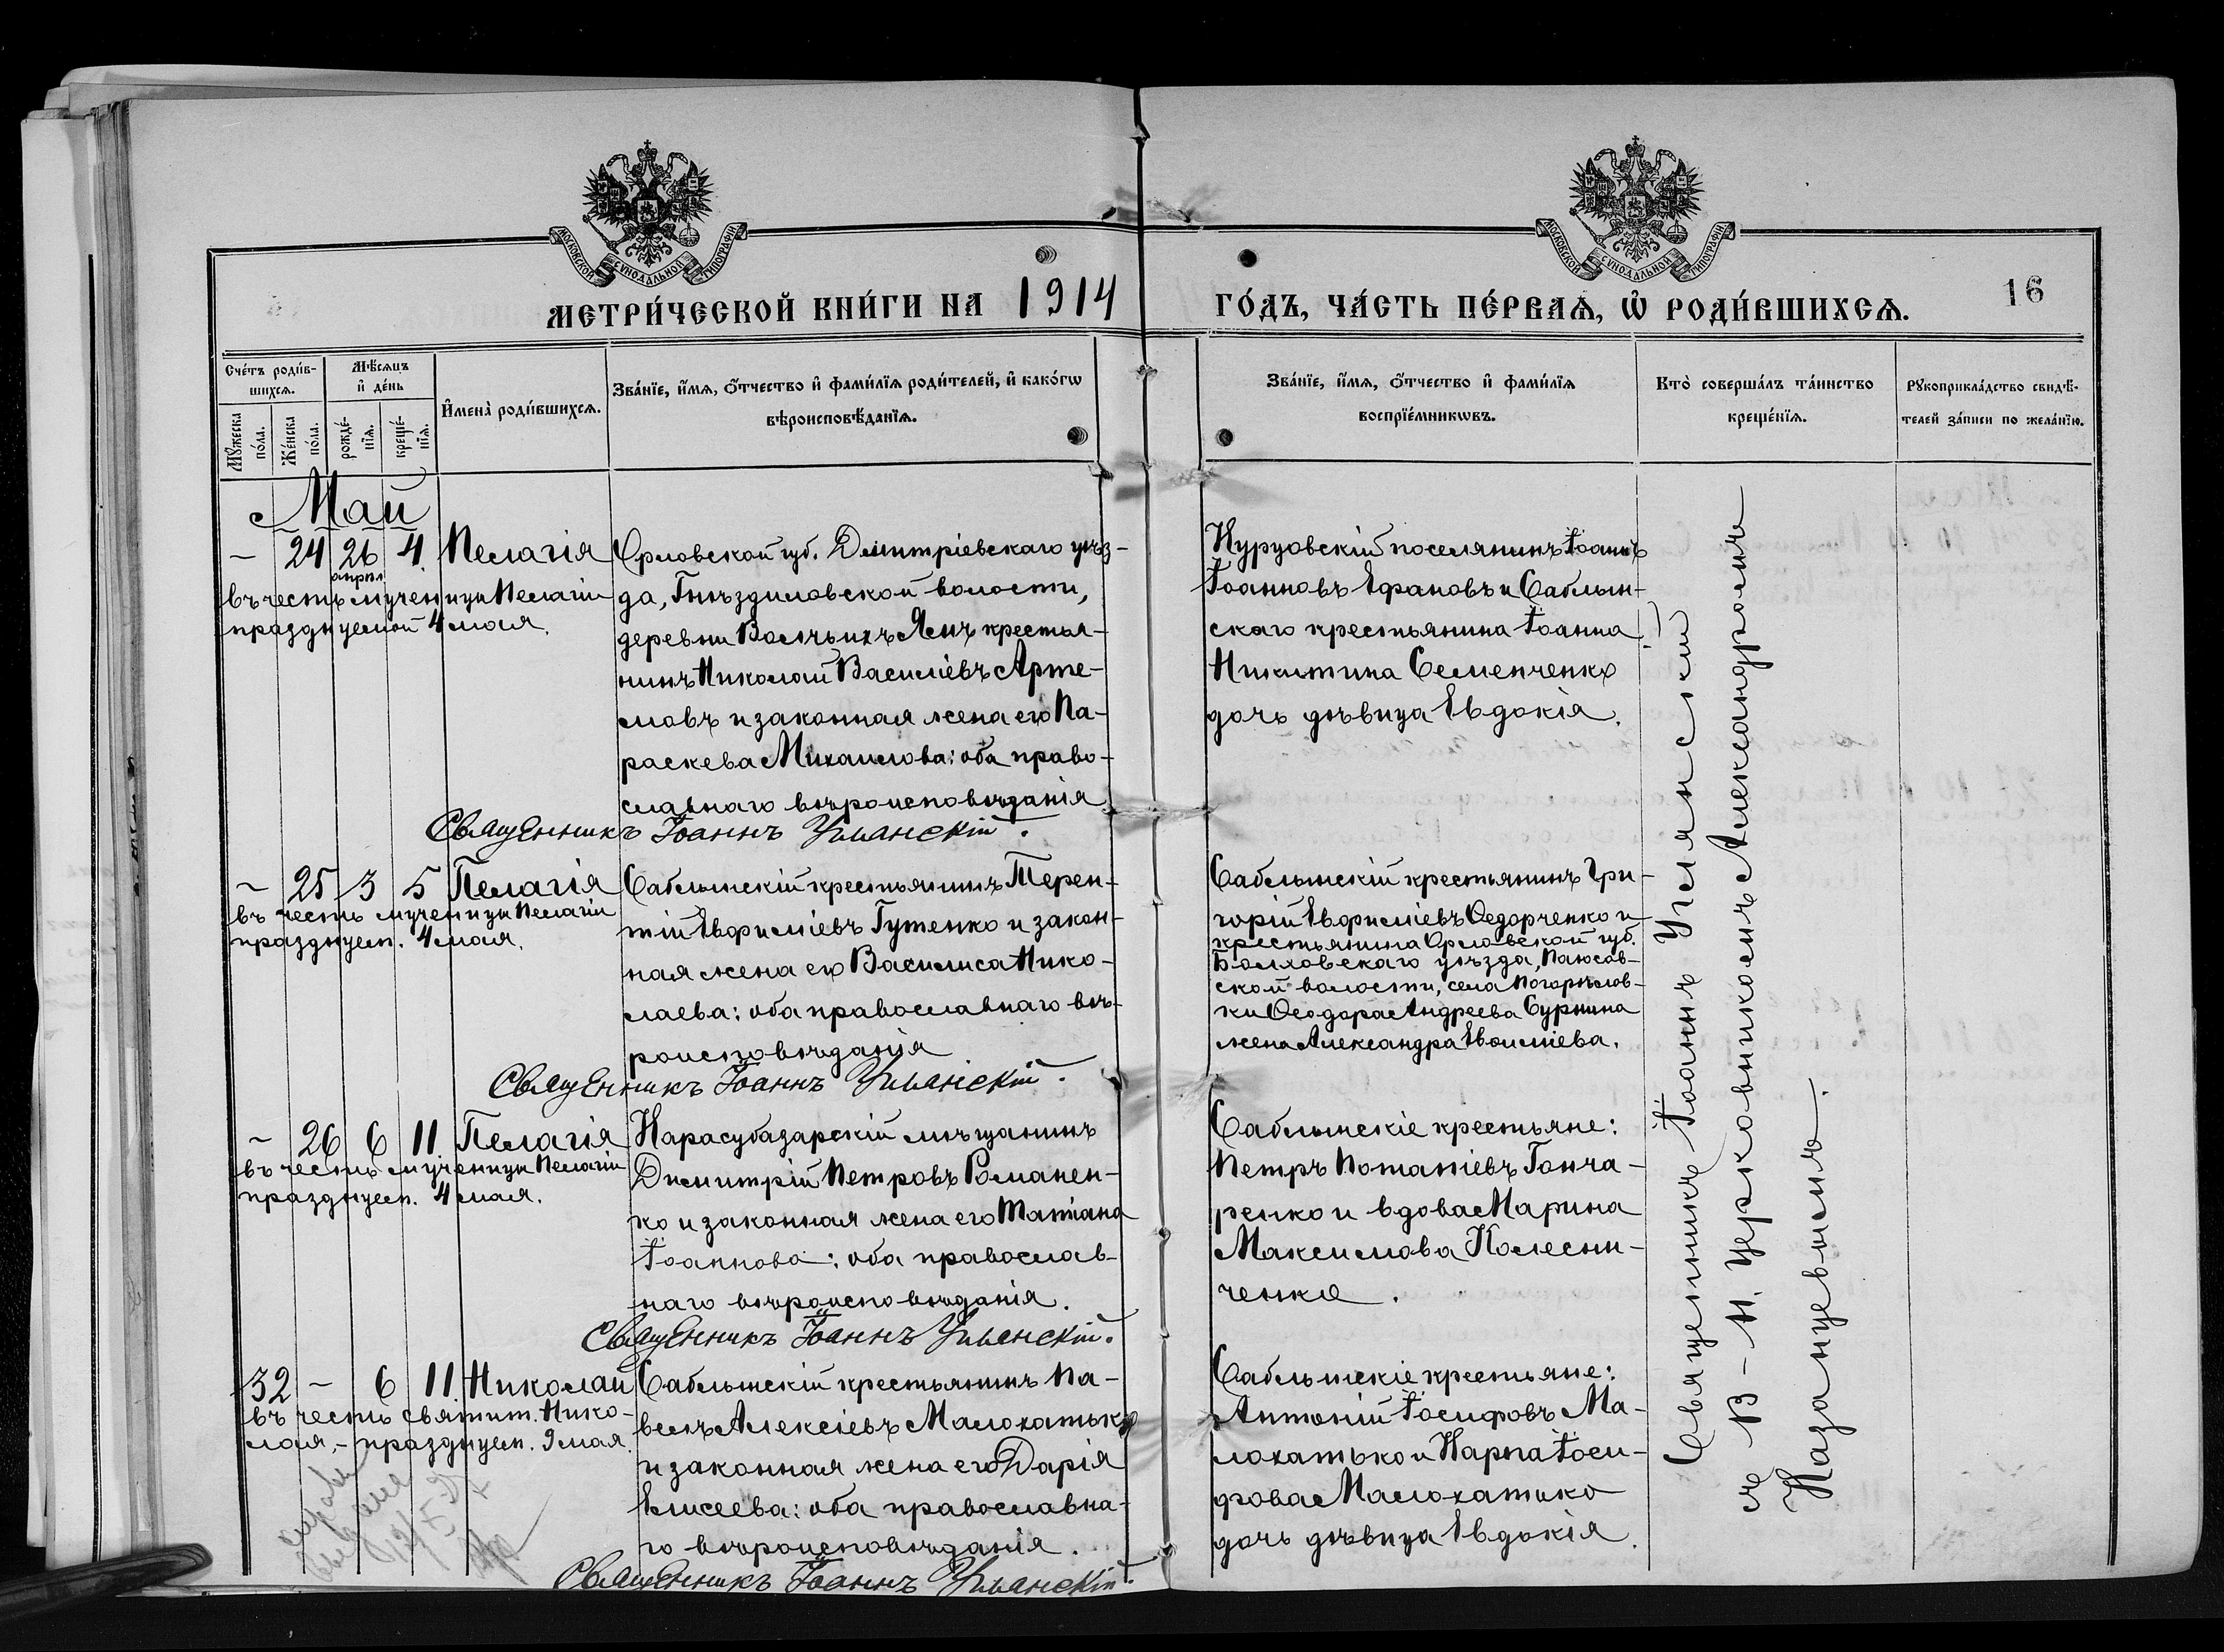 МОСКОВСКОЙ СѴНОДАЛЬНОЙ ТИПОГРАФІИ
МОСКОВСКОЙ СѴНОДАЛЬНОЙ ТИПОГРАФІИ
МЕТРИ́ЧЕСКОЙ КНИ́ГИ НА 1914 ГО́ДЪ, ЧА́СТЬ ПЕ́РВАѦ, Ѡ҆ РОДИ́ВШИХСѦ.
16
Сче́тъ роди́в-
шихсѧ.
Мѣ́сѧцъ
и҆ де́нь
Мꙋ́жеска
по́ла.
Же́нска
по́ла.
рожде́-
нїѧ.
креще́-
нїѧ.
И҆мена̀ роди́вшихсѧ.
Зва́нїе, и҆́мѧ, ѻ҆́тчество и҆ фами́лїѧ роди́телей, и҆ како́гѡ
вѣроисповѣ́данїѧ.
Зва́нїе, и҆́мѧ, ѻ҆́тчество и҆ фами́лїѧ
воспрїе́мникѡвъ.
Кто̀ соверша́лъ та́инство
креще́нїѧ.
Рꙋкоприкла́дство свидѣ́-
телей за́писи по жела́нїю.
Май
- 24 26 4. Пелагія
апрѣл
въ честь мученицы Пелагіи
празднуемой 4 мая.
Орловской губ. Димитріевскаго уѣз-
да, Гнѣздиловской волости,
деревни Волчьихъ Ямъ крестья-
нинъ Николай Василіевъ Арте-
мовъ и законная жена его Па-
раскева Михаилова: оба право-
славнаго вѣроисповѣданія
Священникъ Іоаннъ Углянскій.
Курцовскій поселянинъ Іоаннъ
Іоанновъ Ефановъ и Саблын-
скаго крестьянина Іоанна
Никитина Семенченко
дочь дѣвица Евдокія.
- 25 3 5 Пелагія
въ честь мученицы Пелагіи
празднуем. 4 мая.
Саблынскій крестьянинъ Терен-
тій Евфиміевъ Гутенко и закон-
ная жена его Василиса Нико-
лаева: оба православнаго вѣ-
роисповѣданія
Священникъ Іоаннъ Углянскій.
Саблынскій крестьянинъ Гри-
горій Евфиміевъ Ѳедорченко и
крестьянина Орловской губ.
Болховскаго уѣзда,
ской волости, села Погорѣлов-
ки Ѳеодора Андреева Сурнина
жена Александра
- 26 6 11. Пелагія
въ честь мученицы Пелагіи
празднуем. 4 мая.
Карасубазарскій мѣщанинъ
Димитрій Петровъ Романен-
ко и законная жена его Татіана
Іоаннова: оба православ-
наго вѣроисповѣданія.
Священникъ Іоаннъ Углянскій.
Саблынскіе крестьяне:
Петръ Потапіевъ Гонча-
ренко и вдова Марина
Максимова Колесни-
ченко.
32 - 6 11. Николай
въ честь святит. Нико-
лая, - празднуем. 9 мая.
Саблынскій крестьянинъ Па-
велъ Алексіевъ Малохатько
и законная жена его Дарія
Елисеева: оба православна-
го вѣроисповѣданія.
Священникъ Іоаннъ Углянскій.
Саблынскіе крестьяне:
Антоній Іосифовъ Ма-
лохатько и Карпа Іоси-
фова Малохатько
дочь дѣвица Евдокія.
Священникъ Іоаннъ Углянскій
съ В-И. церковникомъ Александромъ
Казанцевымъ.